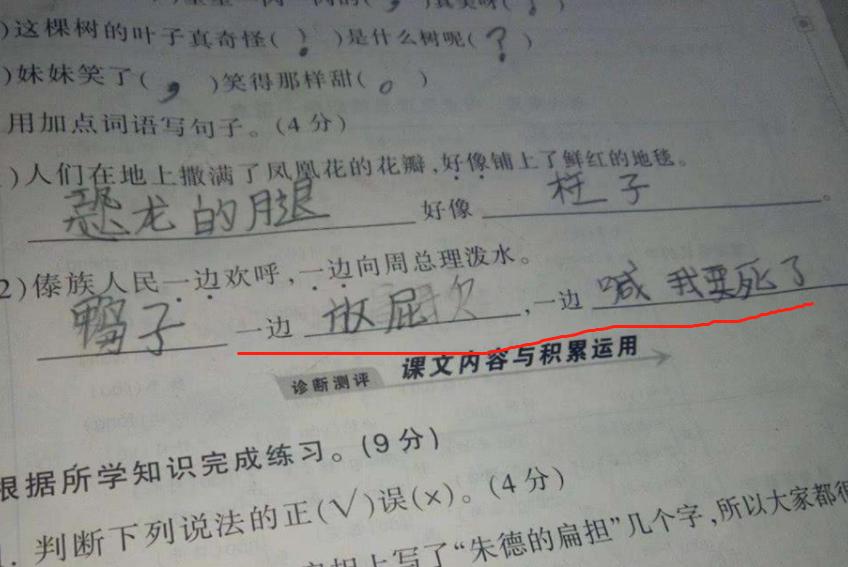 )这棵树的叶子真奇怪( ! )是什么树呢( ? )
)妹妹笑了( , )笑得那样甜( 。 )
用加点词语写句子。(4分)
)人们在地上撒满了凤凰花的花瓣,好像铺上了鲜红的地毯。
恐龙的腿 好像 柱子 。
2)傣族人民一边欢呼,一边向周总理泼水。
鸭子 一边 放屁 ,一边 喊我要死了
诊断测评 课文内容与积累运用
根据所学知识完成练习。(9分)
判断下列说法的正(√)误(×)。(4分)
扁担上写了“朱德的扁担”几个字,所以大家都很